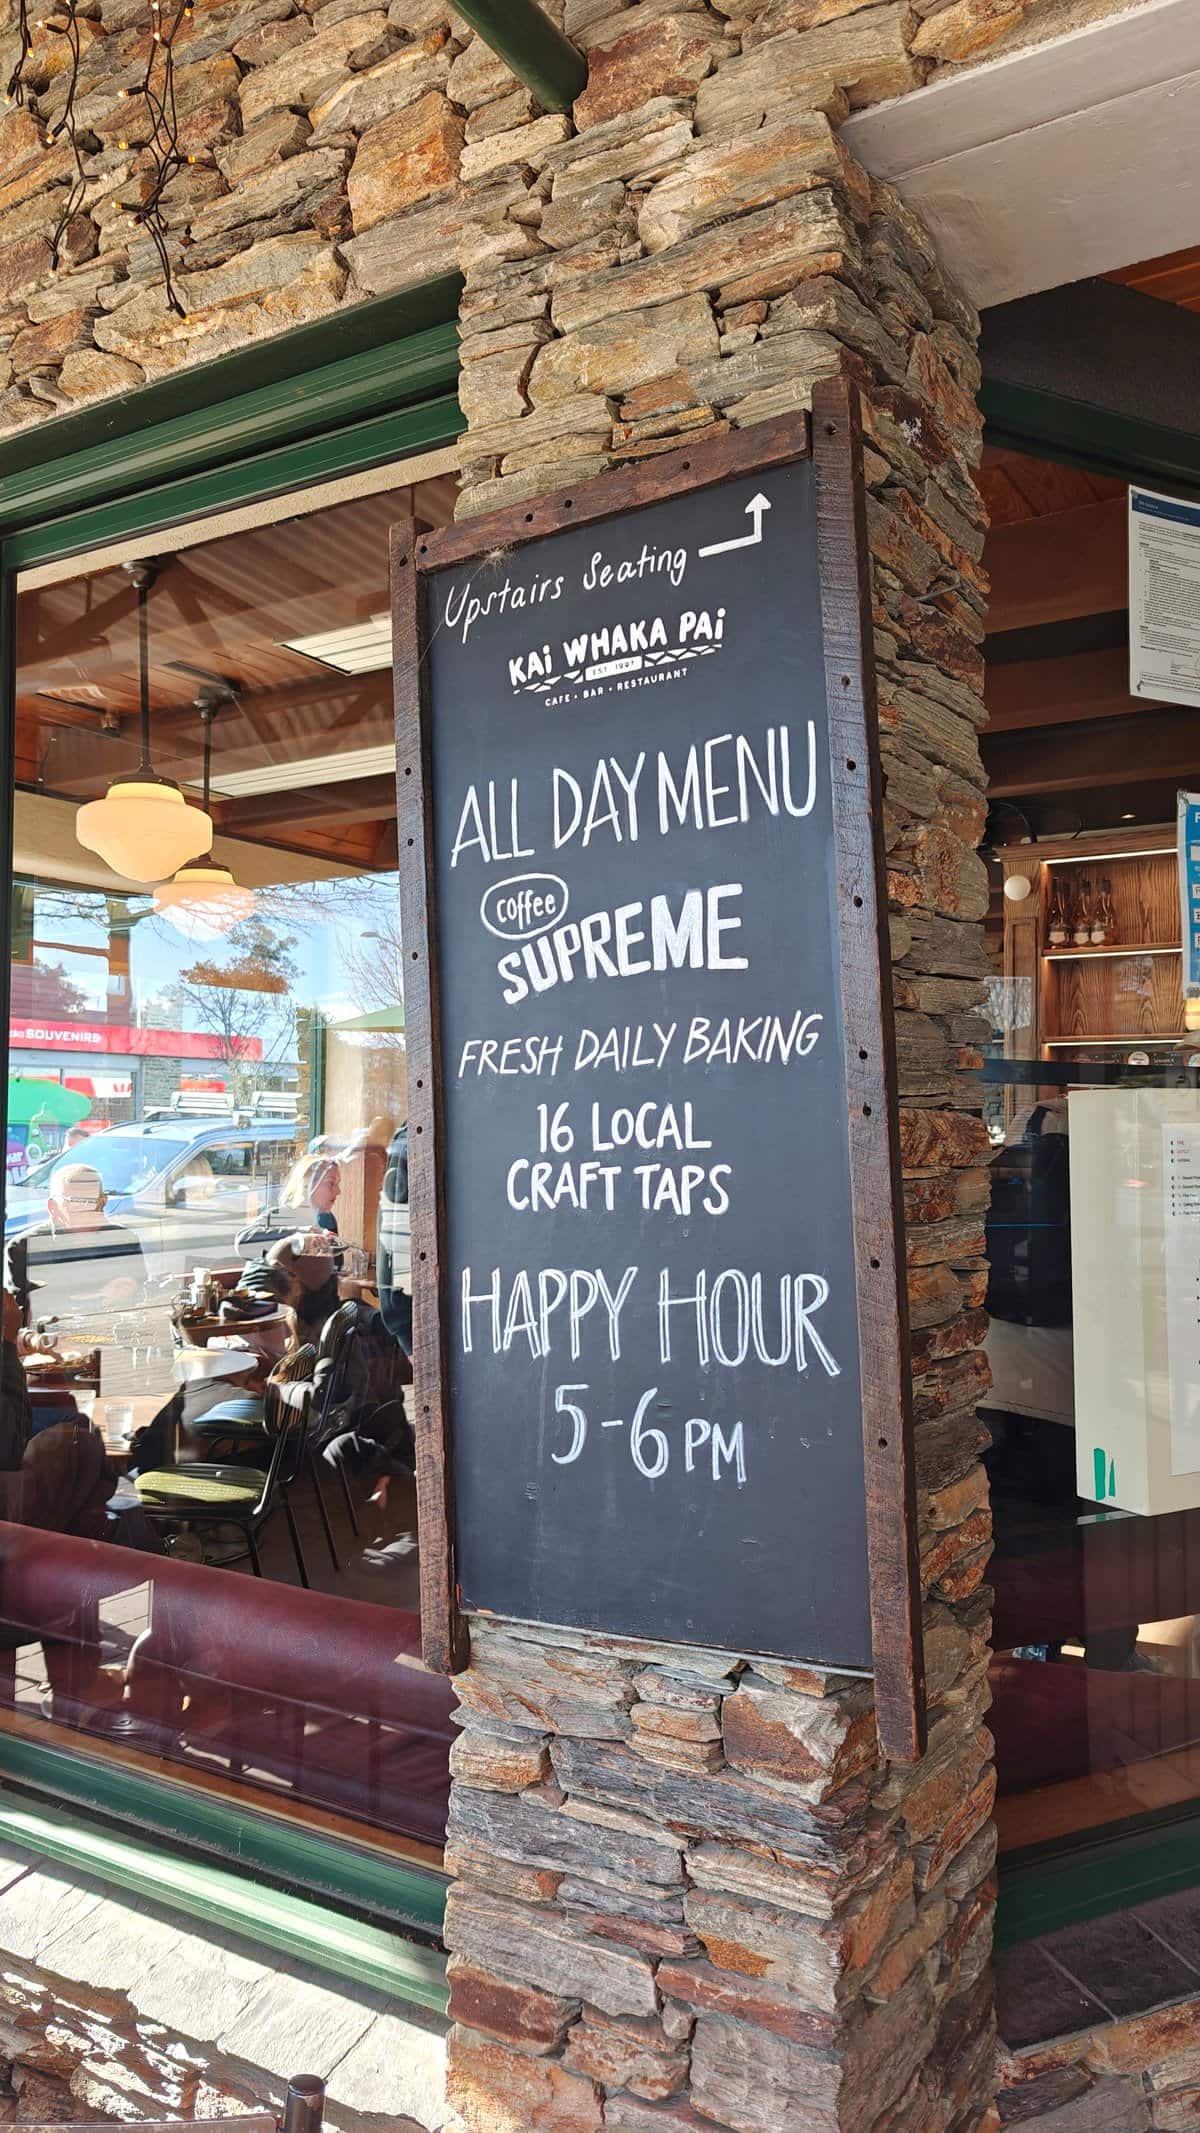 Upstairs Seating
KAi WHAKA PAi
EST. 1997
CAFE • BAR • RESTAURANT
ALL DAY MENU
coffee
SUPREME
FRESH DAILY BAKING
16 LOCAL
CRAFT TAPS
HAPPY HOUR
5-6PM
SOUVENIRS